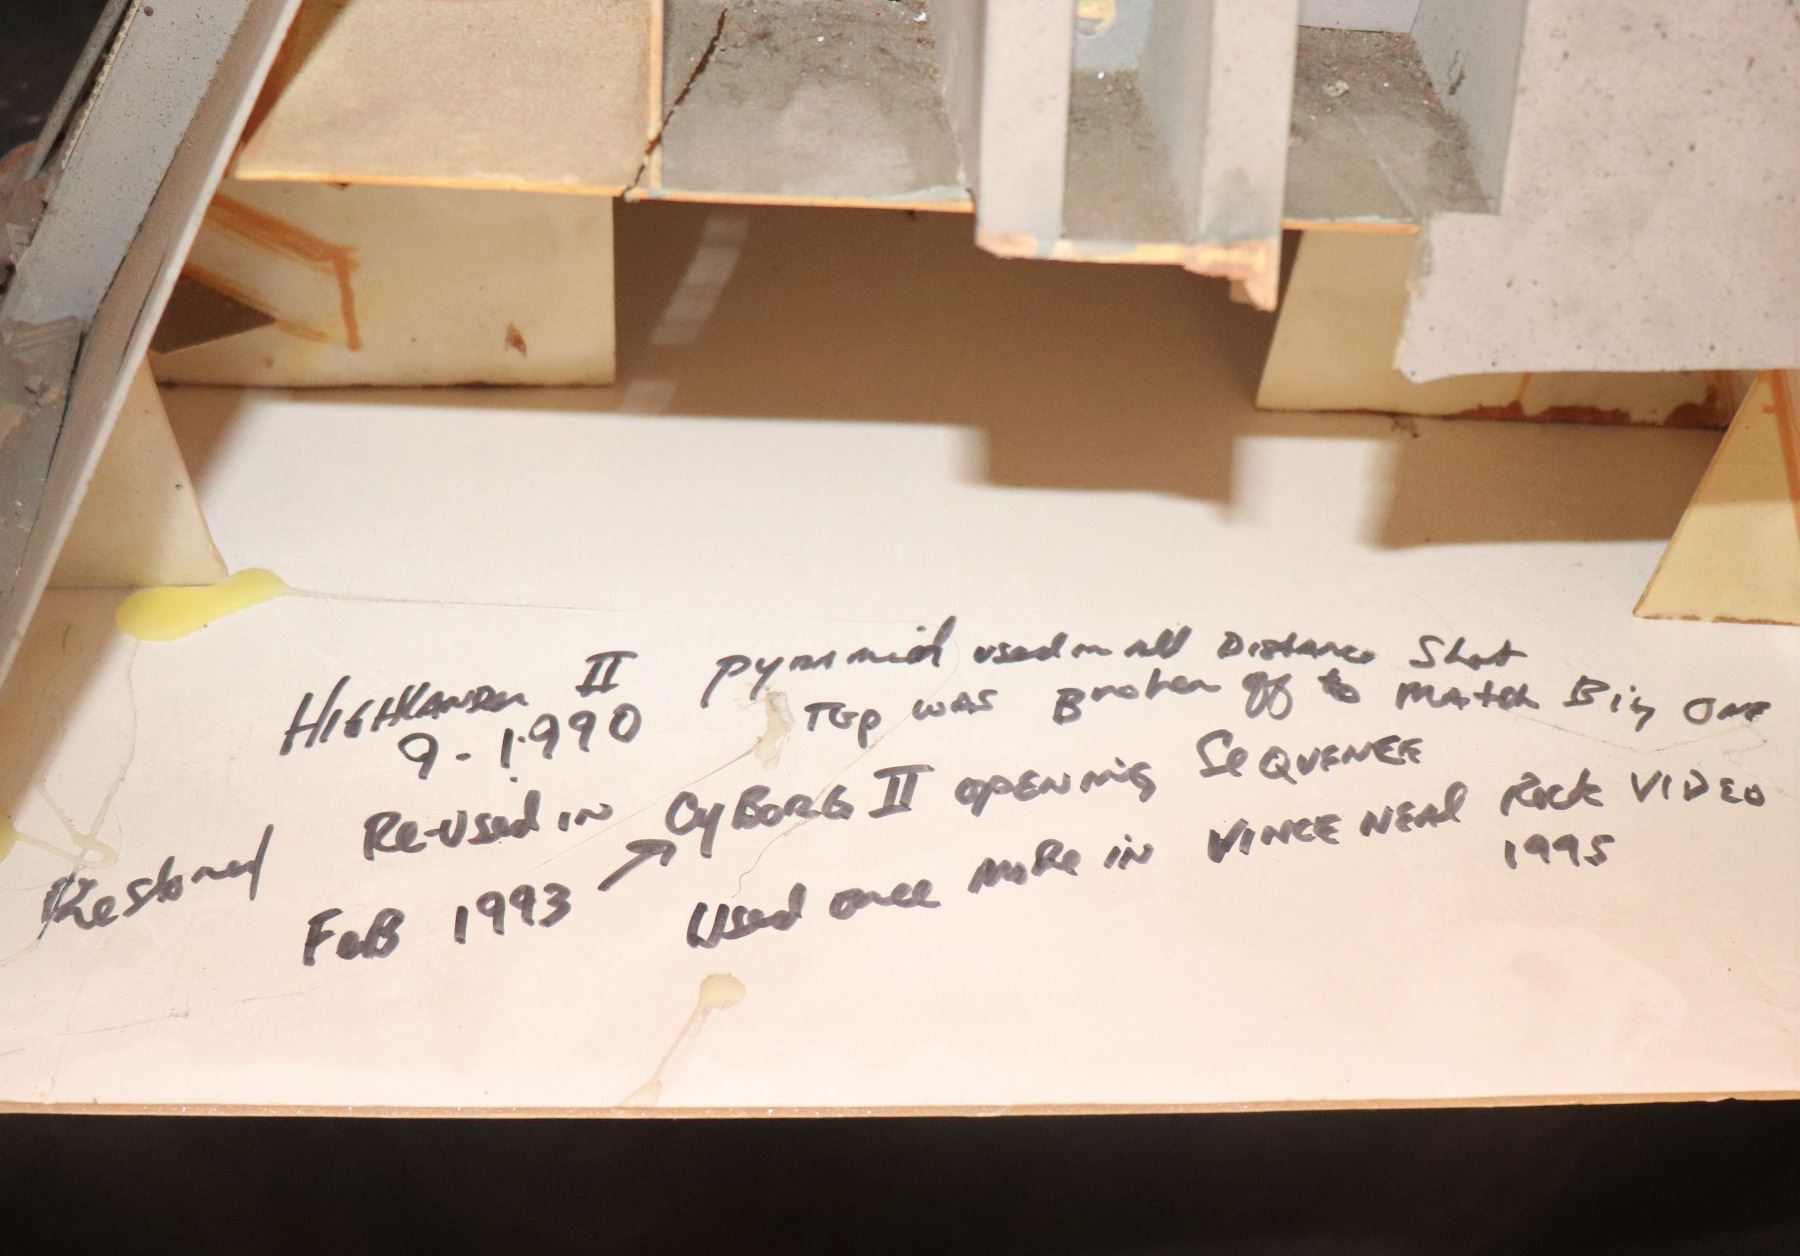 HIGHLANDER II pyramid used in all Distance Shot
9-1-1990 Top was Broken off to Match Big ONE
Re-used in CyBORG II OPENING SEQUENCE
Restored Feb 1993 → Used once more in VINCE NEAL Rock VIDEO
1995